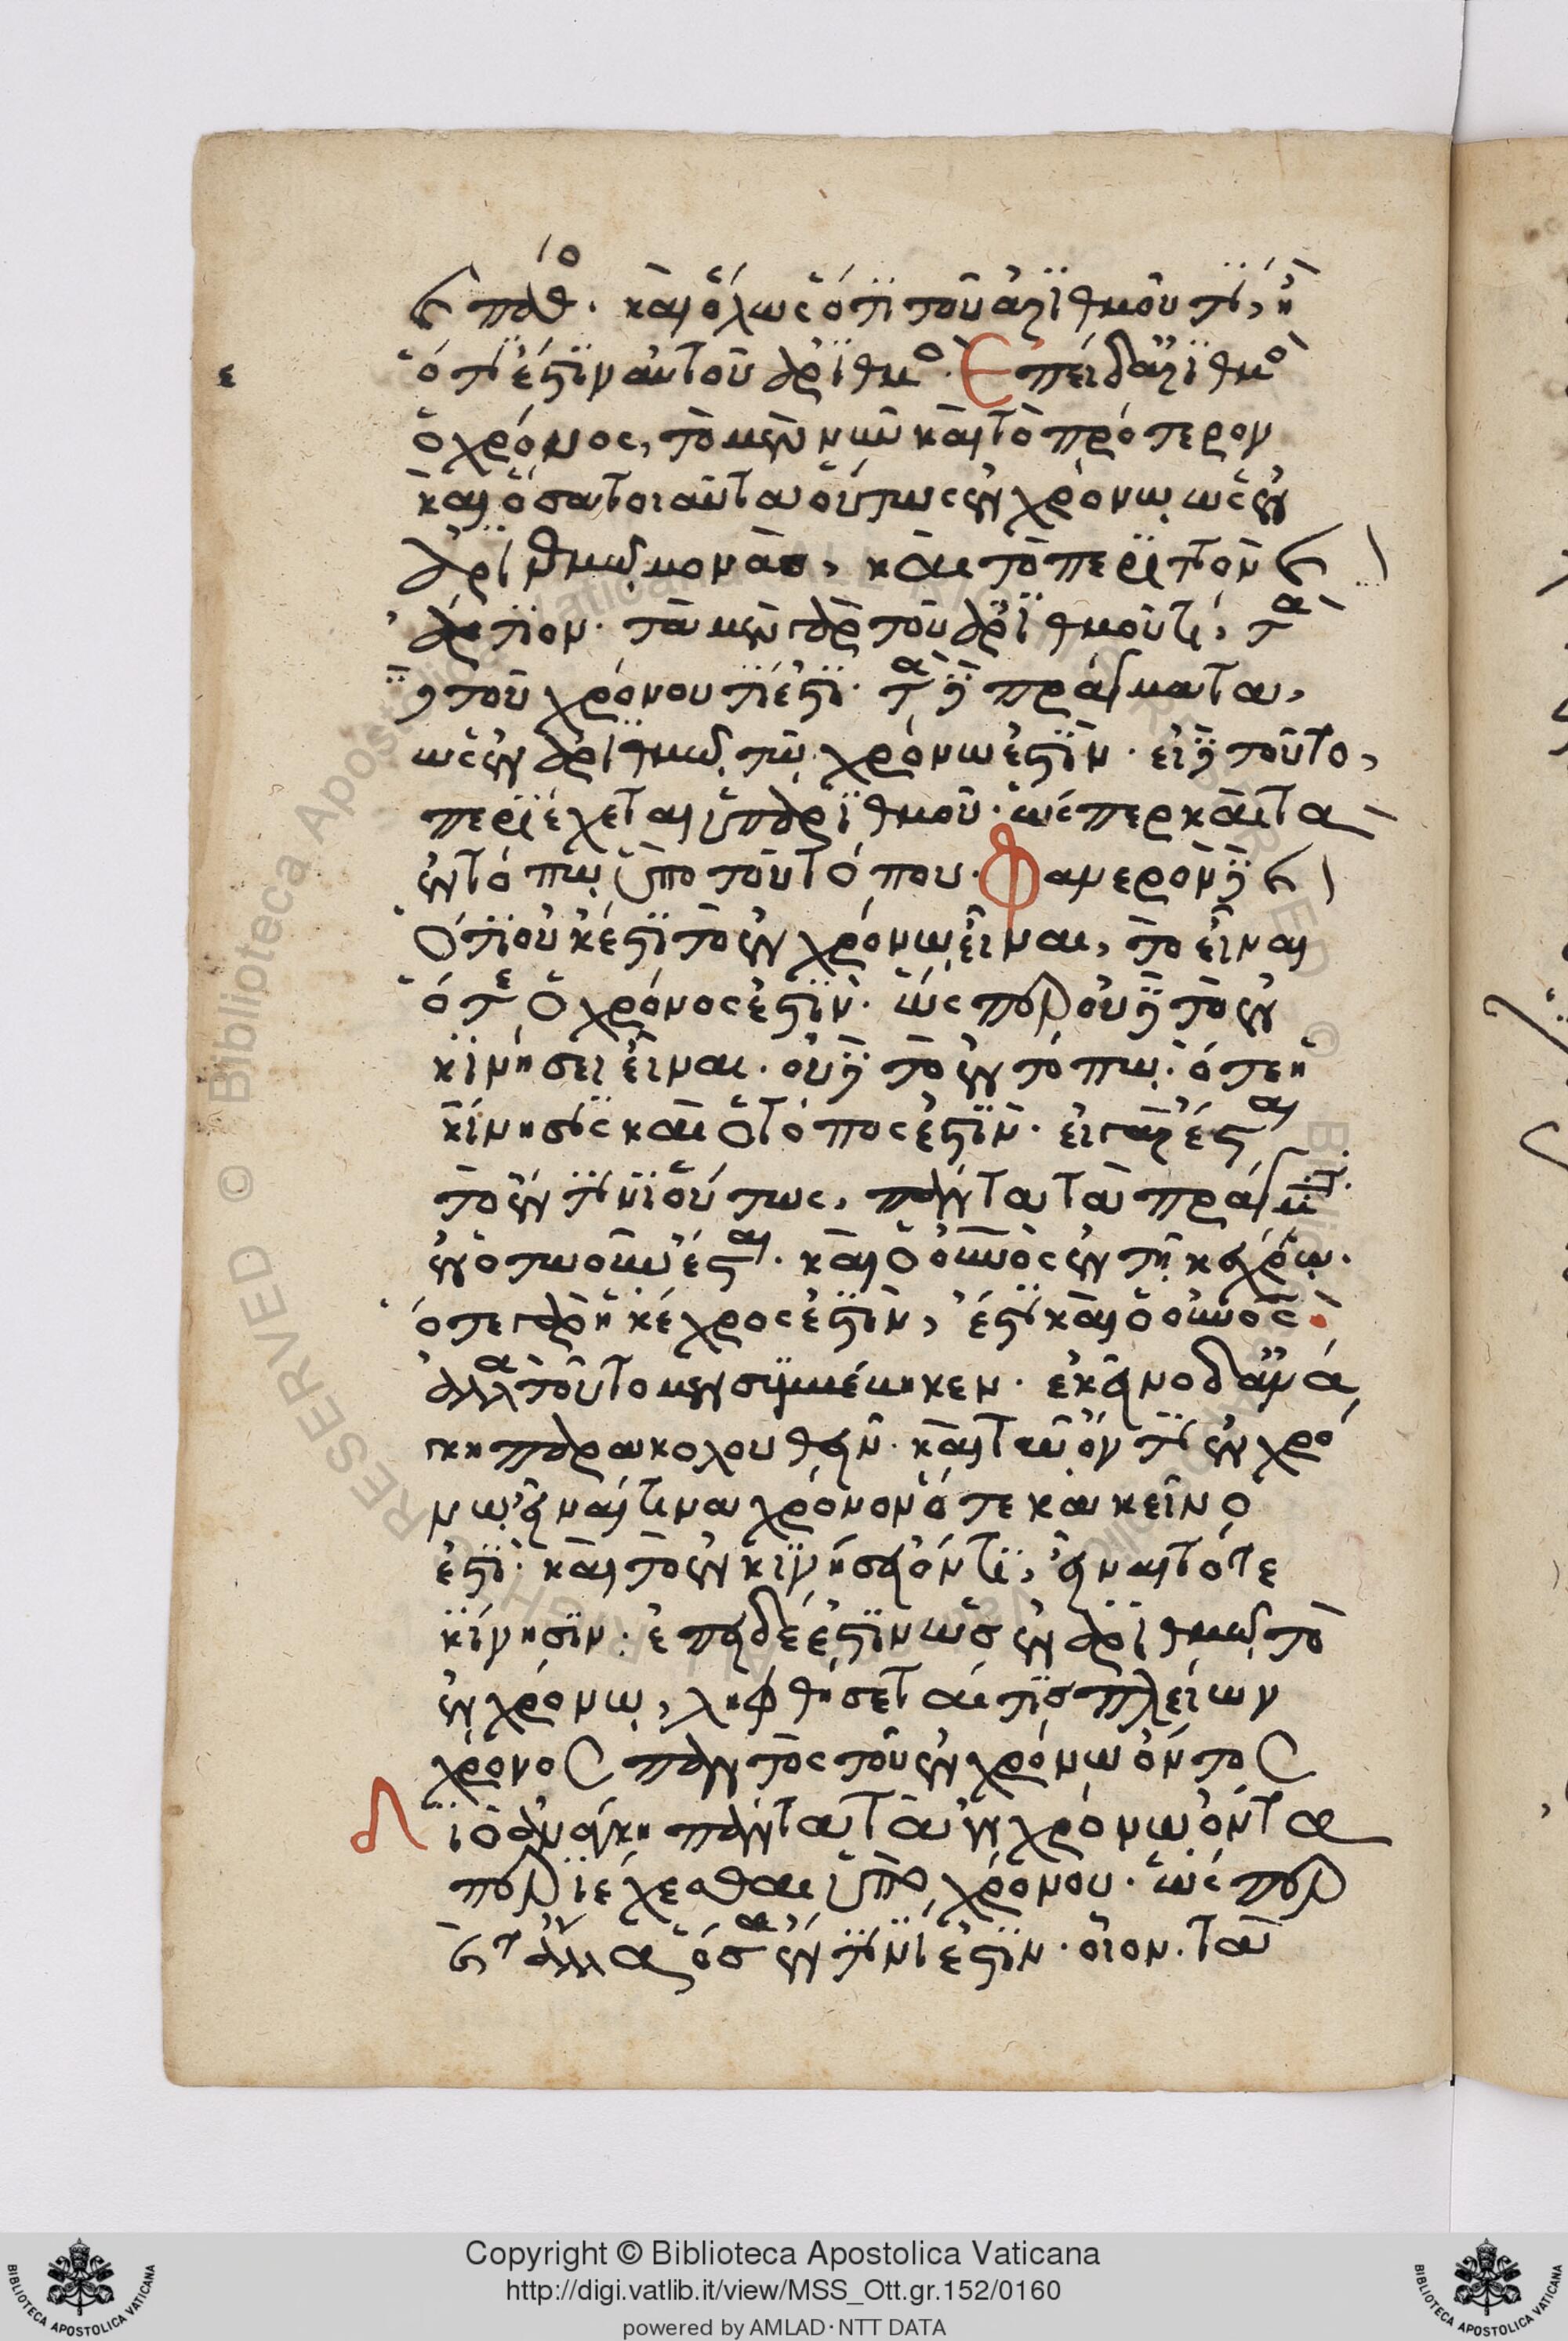 καὶ πάθος. καὶ ὅλως ὅτι τοῦ ἀριθμοῦ τι, ἢ
ε
ὅτι ἔστιν αὐτοῦ ἀριθμός. Ἐπεὶ δ' ἀριθμὸς
ὁ χρόνος, τὸ μὲν νῦν καὶ τὸ πρότερον
καὶ ὅσα τοιαῦτα οὕτως ἐν χρόνῳ ὡς ἐν
ἀριθμῷ μονάς, καὶ τὸ περιττὸν καὶ
ἄρτιον. τὰ μὲν γὰρ τοῦ ἀριθμοῦ τι, τὰ
δὲ τοῦ χρόνου τί ἐστι. τὰ δὲ πράγματα,
ὡς ἐν ἀριθμῷ τῷ χρόνῳ ἐστίν. εἰ δὲ τοῦτο,
περιέχεται ὑπ' ἀριθμοῦ. ὥσπερ καὶ τὰ
ἐν τόπῳ ὑπὸ τοῦ τόπου. Φανερὸν δὲ καὶ
ὅτι οὐκ ἔστι τὸ ἐν χρόνῳ εἶναι, τὸ εἶναι
ὅτε ὁ χρόνος ἐστίν. ὥσπερ οὐδὲ τὸ ἐν
κινήσει εἶναι. οὐδὲ τὸ ἐν τόπῳ. ὅτε ἡ
κίνησις καὶ ὁ τόπος ἐστίν. εἰ γὰρ ἔσται
τὸ ἔν τινι οὕτως, πάντα τὰ πράγματα
ἐν ὁτῳοῦν ἔσται. καὶ ὁ οὐνὸς ἐν τῇ κέγχρῳ.
ὅτε γὰρ ἡ κέγχρος ἐστίν, ἔστι καὶ ὁ οὐνός.
ἀλλὰ τοῦτο μὲν συμβέβηκεν. ἐκεῖνο δ' ἀνά
γκη παρακολουθεῖν. καὶ τῷ ὄντι ἐν χρό
νῳ εἶναί τινα χρόνον ὅτε κακεῖνο
ἐστι. καὶ τὸ ἐν κινήσει ὄντι, εἶναι τότε
κίνησιν. ἐπεὶ δέ ἐστιν ὡς ἐν ἀριθμῷ τὸ
ἐν χρόνῳ, ληφθήσεταί τις πλείων
χρόνος παντὸς τοῦ ἐν χρόνῳ ὄντος
Διὸ ἀνάγκη πάντα τὰ ἐν χρόνῳ ὄντα
περιέχεσθαι ὑπὸ χρόνου. ὥσπερ
καὶ τἆλλα ὅσα ἔν τινί ἐστιν. οἷον. τὰ
Copyright © Biblioteca Apostolica Vaticana
http://digi.vatlib.it/view/MSS_Ott.gr.152/0160
powered by AMLAD·NTT DATA